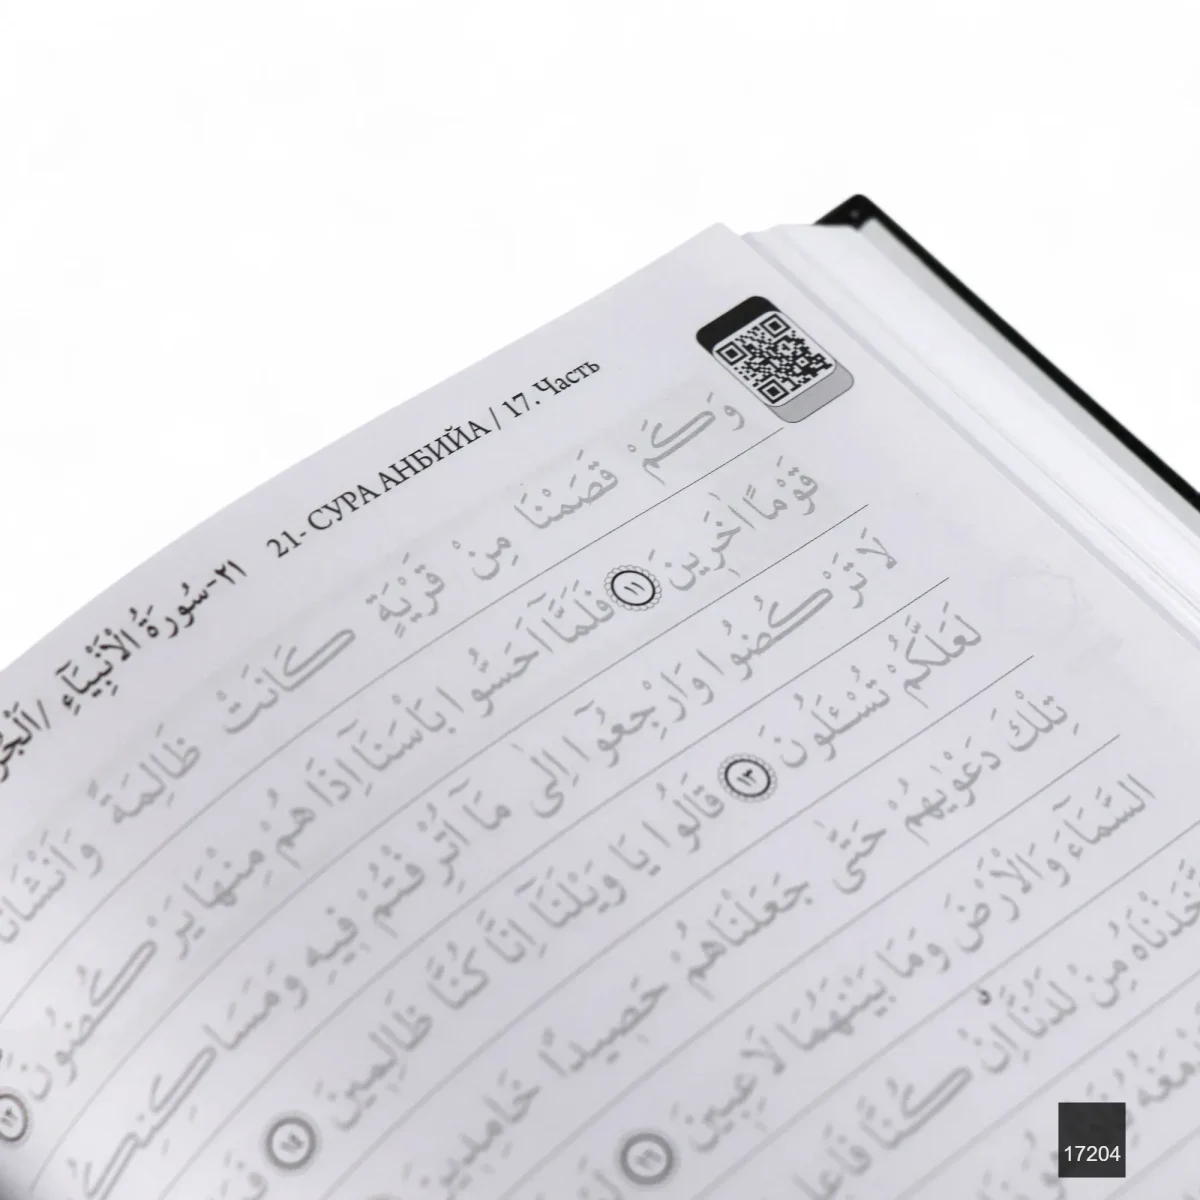 ٢١-سُورَةُ الْاَنْبِيَآءِ / 21- СУРА АНБИЙА / 17. Часть
وَكَمْ قَصَمْنَا مِنْ قَرْيَةٍ كَانَتْ ظَالِمَةً وَاَنْشَاْنَا
قَوْمًا اٰخَرِينَ ١١ فَلَمَّٓا اَحَسُّوا بَاْسَنَٓا اِذَا هُمْ مِنْهَا يَرْكُضُونَ ١٢
لَا تَرْكُضُوا وَارْجِعُٓوا اِلٰى مَٓا اُتْرِفْتُمْ فِيهِ وَمَسَاكِنِكُمْ
لَعَلَّكُمْ تُسْـَٔلُونَ ١٣ قَالُوا يَا وَيْلَنَٓا اِنَّا كُنَّا ظَالِمِينَ ١٤
تِلْكَ دَعْوٰيهُمْ حَتّٰى جَعَلْنَاهُمْ حَصِيدًا خَامِدِينَ
السَّمَٓاءَ وَالْاَرْضَ وَمَا بَيْنَهُمَا لَاعِبِينَ ١٦
لَدُنَّٓا اِنْ كُنَّا مِنْ
17204